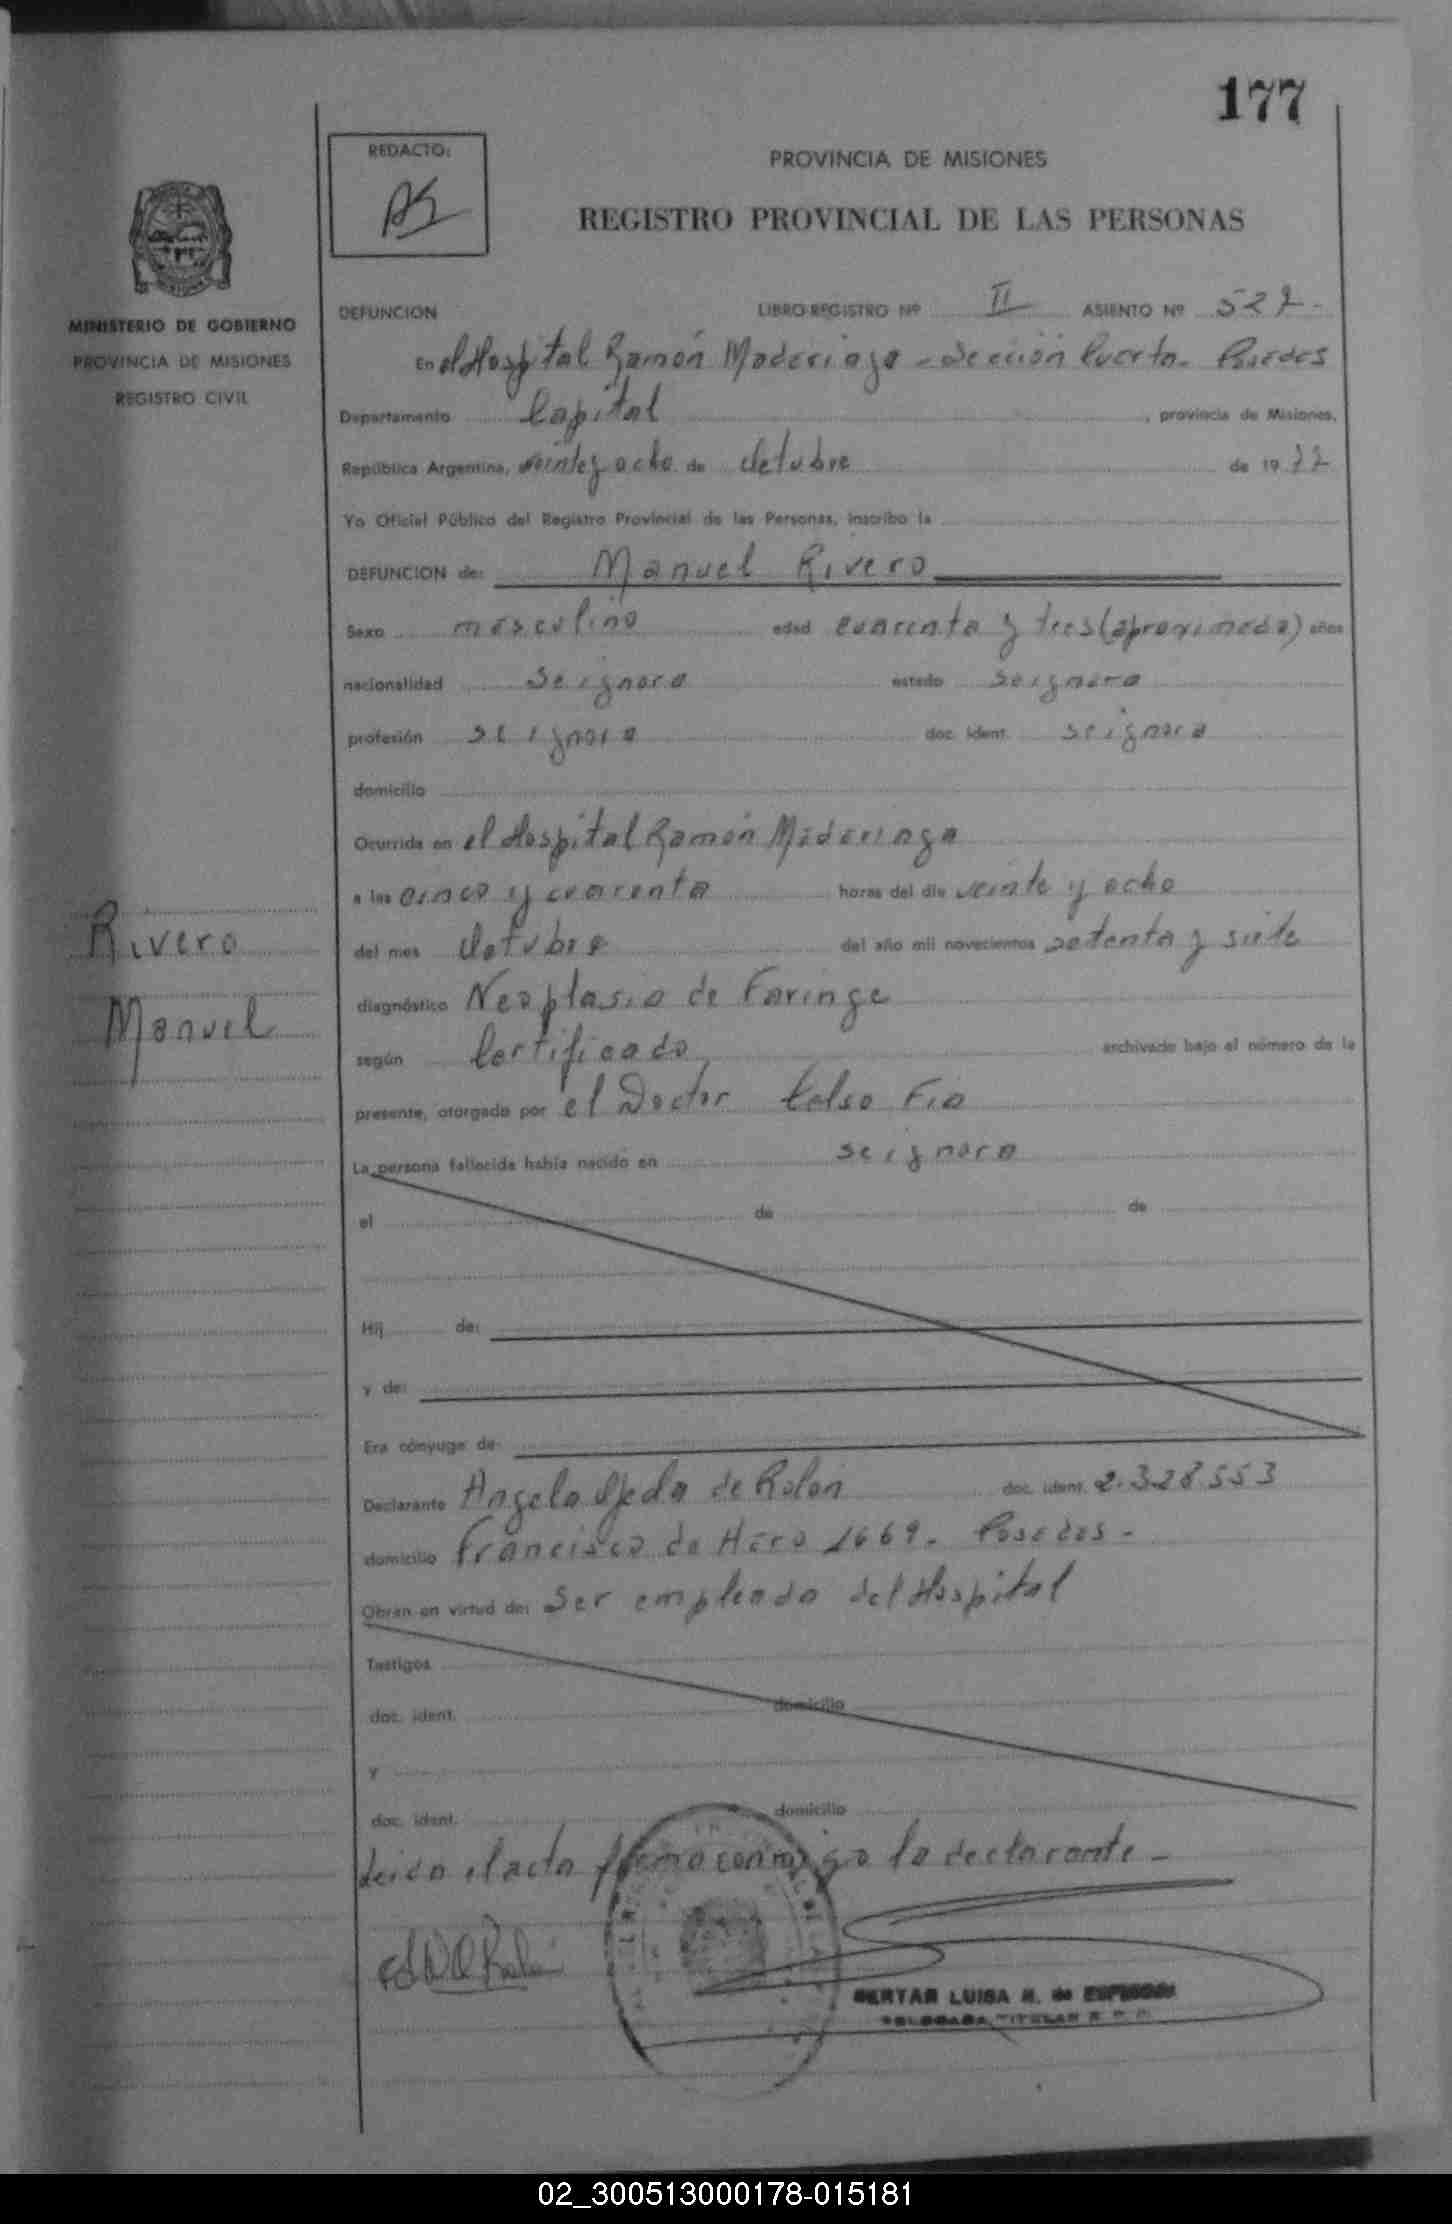 177
REDACTO:
PROVINCIA DE MISIONES
REGISTRO PROVINCIAL DE LAS PERSONAS
MINISTERIO DE GOBIERNO
PROVINCIA DE MISIONES
REGISTRO CIVIL
DEFUNCION LIBRO-REGISTRO Nº II ASIENTO Nº 527-
En el Hospital Ramón Madariaga - Sección Puerto - Posadas
Departamento Capital, provincia de Misiones,
República Argentina, veinte y ocho de Octubre de 1977
Yo Oficial Público del Registro Provincial de las Personas, inscribo la
DEFUNCION de: Manuel Rivero
Sexo masculino edad cuarenta y tres (aproximada) años
nacionalidad se ignora estado se ignora
profesión se ignora doc. ident. se ignora
domicilio
Ocurrida en el Hospital Ramón Madariaga
a las cinco y cuarenta horas del día veinte y ocho
del mes Octubre del año mil novecientos setenta y siete
diagnóstico Neoplasia de Faringe
según Certificado archivado bajo el número de la
presente, otorgado por el Doctor Celso Fia
La persona fallecida había nacido en se ignora
el de de
Hij de:
y de:
Era cónyuge de:
Declarante Angela Ojeda de Rolón doc. ident. 2.328.553
domicilio Francisco de Haro 1669. Posadas -
Obran en virtud de: Ser empleada del Hospital
Testigos
doc. ident. domicilio
y
doc. ident. domicilio
Leida el acta firma conmigo la declarante -
Rivero
Manuel
LUISA M. de
DELEGADA TITULAR R. P. P.
02_300513000178-015181